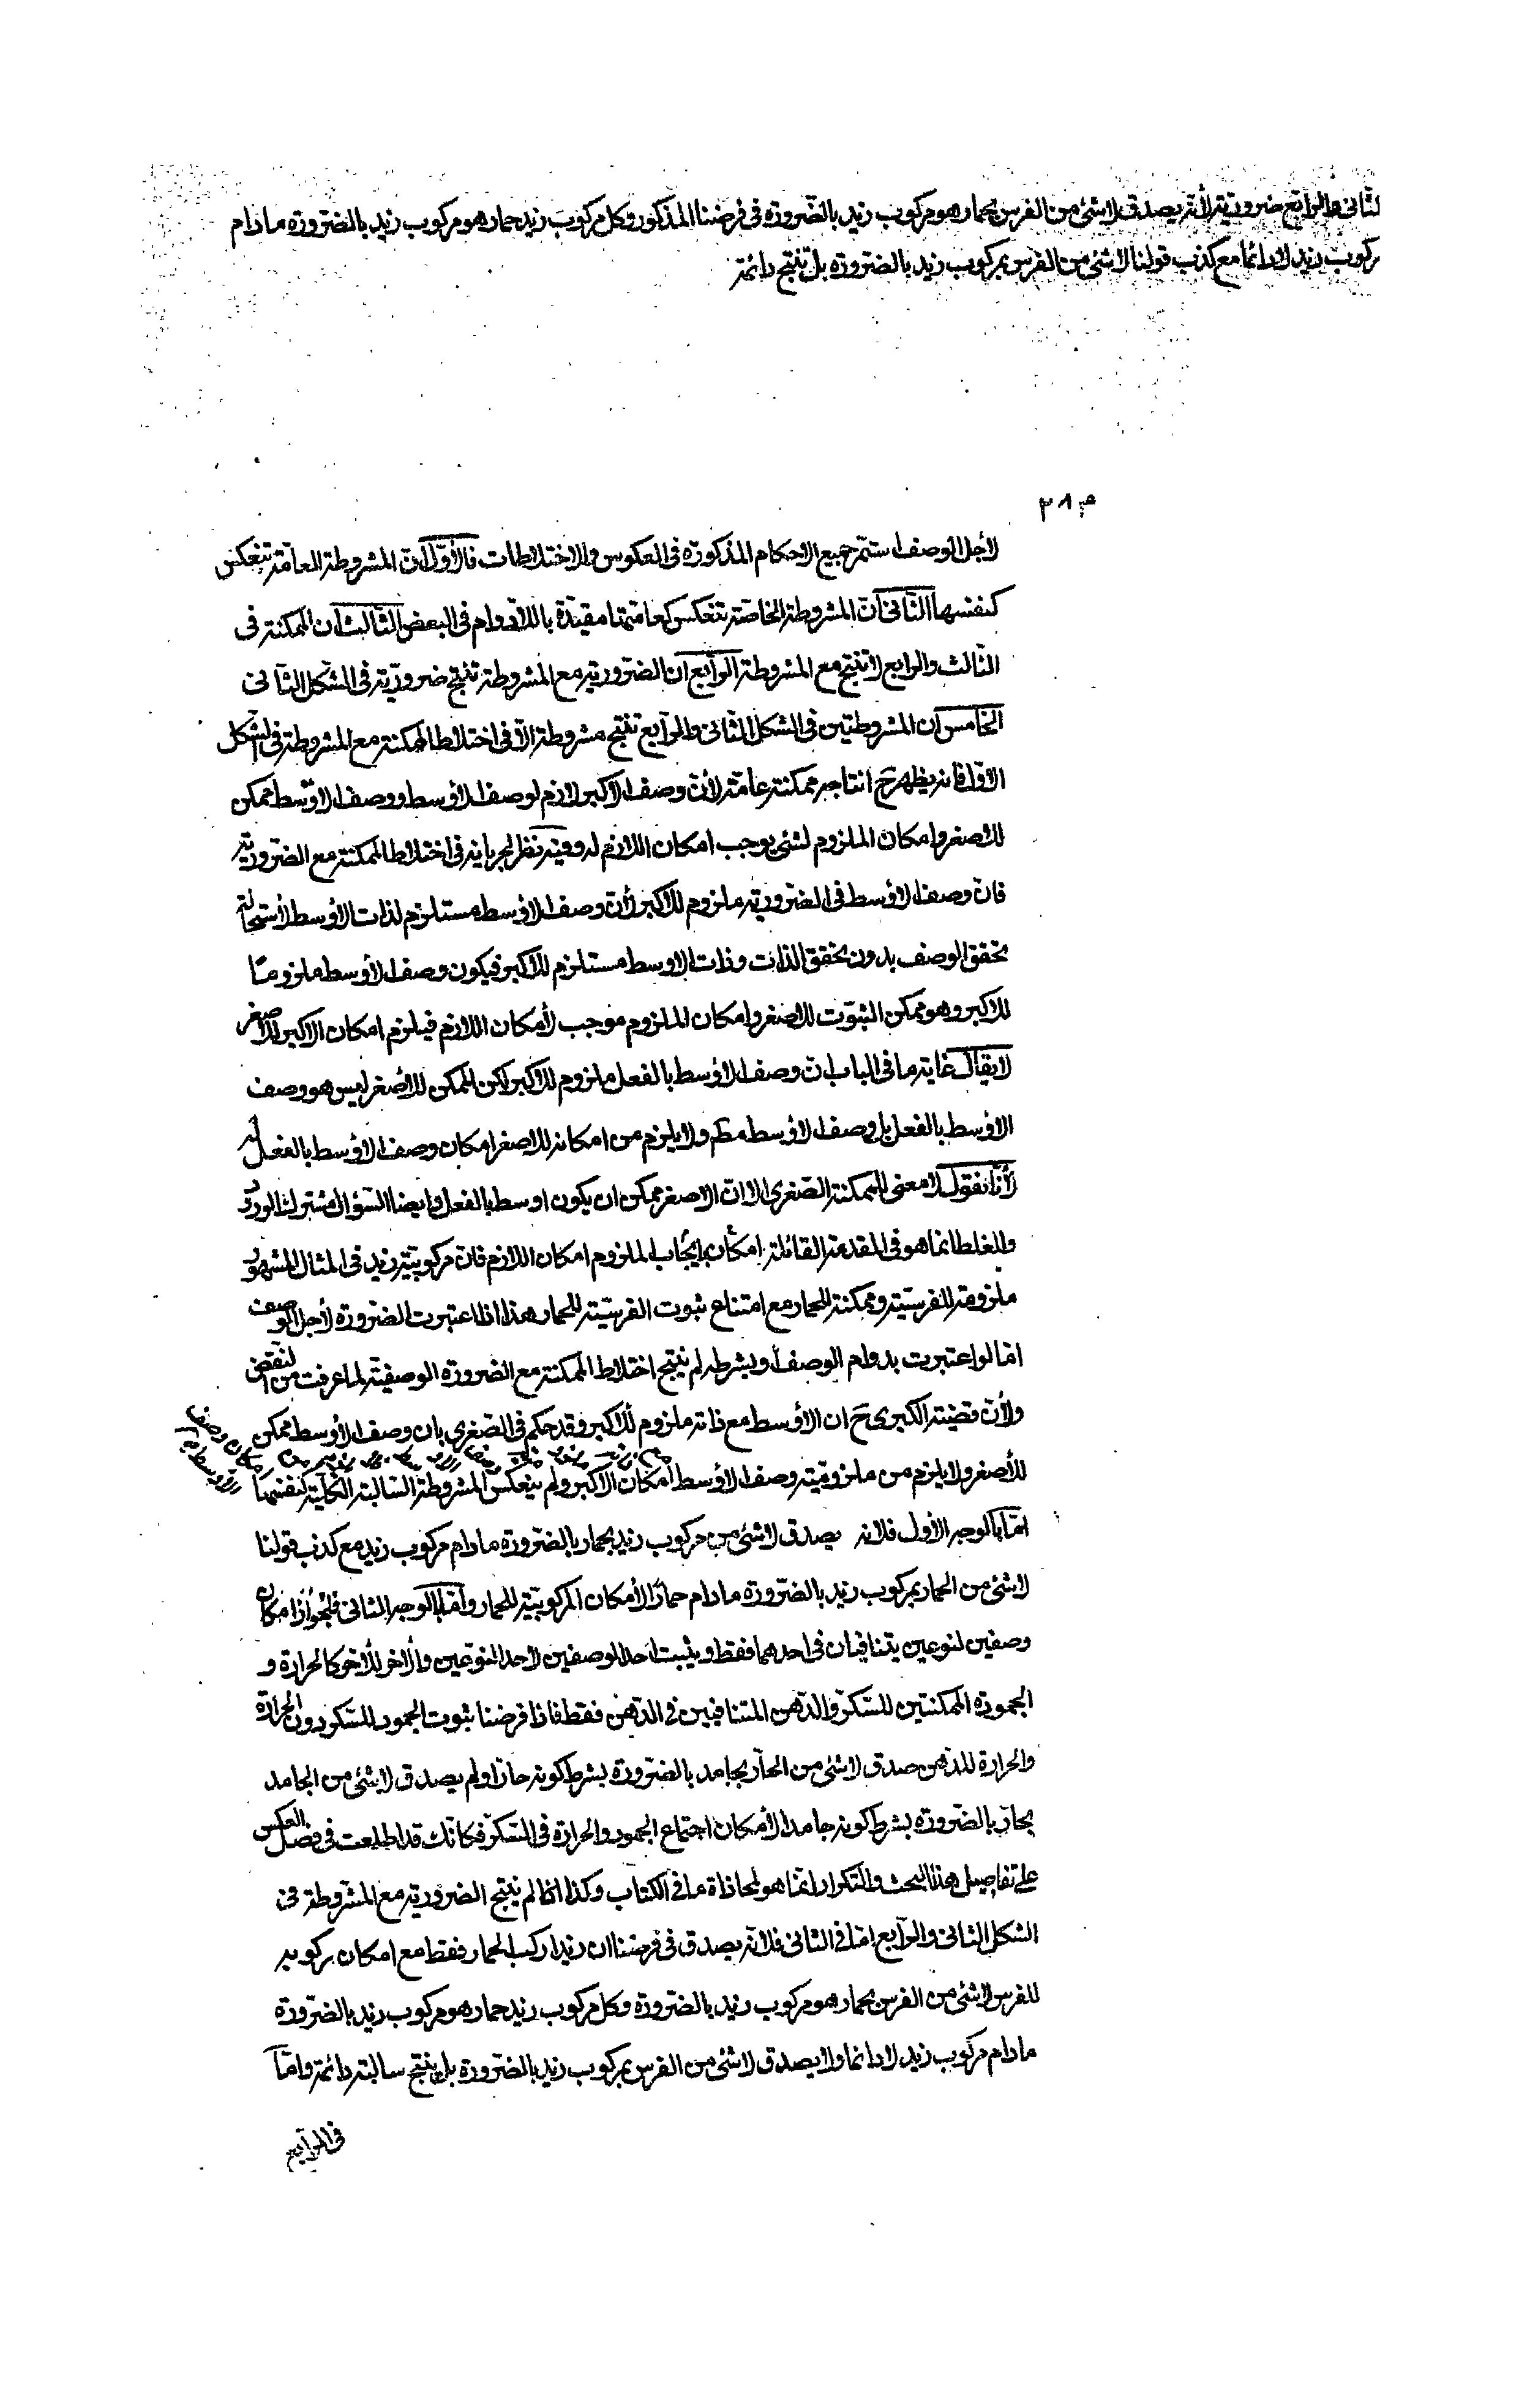 الثانى والرابع ضرورية لأنه يصدق لا شئ من الفرس بحمار هو مركوب زيد بالضرورة فى فرضنا المذكور وكل مركوب زيد حمار هو مركوب زيد بالضرورة مادام
مركوب زيد لا دائما مع كذب قولنا لا شئ من الفرس بمركوب زيد بالضرورة بل تنتج دائمة
م ٢٨
لاجل الوصف استمر جميع الاحكام المذكورة فى العكوس والاختلاطات فالأول أن المشروطة العامة تنعكس
كنفسها الثانى أن المشروطة الخاصة تنعكس كعامتها مقيدة باللادوام فى البعض الثالث أن الممكنة فى
الثالث والرابع لا تنتج مع المشروطة الرابع ان الضرورية مع المشروطة تنتج ضرورية فى الشكل الثانى
الخامس أن المشروطتين فى الشكل الثانى والرابع تنتج مشروطة الا فى اختلاط الممكنة مع المشروطة فى الشكل
الاول فانه يظهر ح انتاجه ممكنة عامة لأن وصف الاكبر لازم لوصف الأوسط ووصف الاوسط ممكن
للاصغر وامكان الملزوم لشئ يوجب امكان اللازم له وفيه نظر لجريانه فى اختلاط الممكنة مع الضرورية
فان وصف الاوسط فى الضرورية ملزوم للاكبر لأن وصف الاوسط مستلزم لذات الأوسط لأستحالة
تحقق الوصف بدون تحقق الذات وذات الاوسط مستلزم للاكبر فيكون وصف الأوسط ملزوما
للاكبر وهو ممكن الثبوت للاصغر وامكان الملزوم موجب لأمكان اللازم فيلزم امكان الاكبر للاصغر
لا يقال غاية ما فى الباب ان وصف الاوسط بالفعل ملزوم للاكبر لكن الممكن للأصغر ليس هو وصف
الاوسط بالفعل بل وصف الاوسط مطم ولا يلزم من امكانه للاصغر امكان وصف الاوسط بالفعل له
لأنا نقول لا معنى للممكنة الصغرى الا ان الاصغر ممكن ان يكون اوسط بالفعل وايضا السؤال مشترك الورود
والغلط انما هو فى المقدمة القائلة امكان بإيجاب الملزوم امكان اللازم فان مركوبية زيد فى المثال المشهور
ملزومة للفرسية وممكنة للحمار مع امتناع ثبوت الفرسية للحمار هذا اذا اعتبرت الضرورة لأجل الوصف
اما لو اعتبرت بدوام الوصف أو بشرطه لم ينتج اختلاط الممكنة مع الضرورة الوصفية لما عرفت من النقض
ولأن قضية الكبرى ح ان الاوسط مع ذاته ملزوم للاكبر وقد حكم فى الصغرى بان وصف الأوسط ممكن
للأصغر ولا يلزم من ملزومية وصف الاوسط امكان الاكبر ولم ينعكس المشروطة السالبة الكلية كنفسها
امّا بالوجه الأول فلانه يصدق لا شئ من مركوب زيد بحمار بالضرورة مادام مركوب زيد مع كذب قولنا
لا شئ من الحمار بمركوب زيد بالضرورة مادام حمارا لأمكان المركوبية للحمار وامّا بالوجه الثانى فلجواز امكان
وصفين لنوعين يتنافيان فى احدهما فقط ويثبت احد الوصفين لاحد النوعين والآخر للأخر كالحرارة و
الجمودة الممكنتين للسكر والدهن المتنافيين فى الدهن فقط فاذا فرضنا ثبوت الجمود للسكر دون الحرارة
والحرارة للدهن صدق لا شئ من الحار بجامد بالضرورة بشرط كونه حارا ولم يصدق لا شئ من الجامد
بحار بالضرورة بشرط كونه جامدا لأمكان اجتماع الجمود والحرارة فى السكر فكانك قد اطلعت فى فصل العكس
على تفاصيل هذا البحث والتكرار انما هو لمحاذاة ما فى الكتاب وكذا اذا لم ينتج الضرورية مع المشروطة فى
الشكل الثانى والرابع امّا فى الثانى فلانه يصدق فى فرضنا ان زيدا ركب الحمار فقط مع امكان ركوبه
للفرس لا شئ من الفرس بحمار هو مركوب زيد بالضرورة وكل مركوب زيد حمار هو مركوب زيد بالضرورة
مادام مركوب زيد لا دائما ولا يصدق لا شئ من الفرس بمركوب زيد بالضرورة بل ينتج سالبة دائمة وامّا
فى الرابع